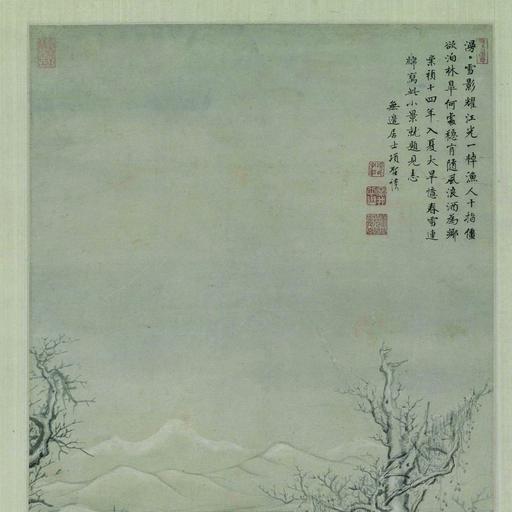 漫〻雪影耀江光一棹漁人十指僵
欲泊林皋何處穩肯隨風浪酒為鄉
崇禎十四年入夏大旱憶春雪連
綿寫此小景就題見志
無邊居士項聖謨